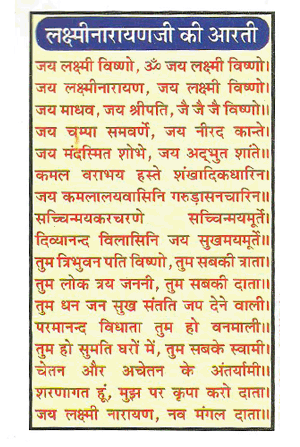 लक्ष्मीनारायणजी की आरती
जय लक्ष्मी विष्णो, ॐ जय लक्ष्मी विष्णो।
जय लक्ष्मीनारायण, जय लक्ष्मी विष्णो।
जय माधव, जय श्रीपति, जै जै जै विष्णो।।
जय चम्पा समवर्णे, जय नीरद कान्ते।
जय मंदस्मित शोभे, जय अद्भुत शांते।।
कमल वराभय हस्ते शंखादिकधारिन।
जय कमलालयवासिनि गरुडासनचारिन।।
सच्चिन्मयकरचरणे सच्चिन्मयमूर्ते।
दिव्यानन्द विलासिनि जय सुखमयमूर्ते।।
तुम त्रिभुवन पति विष्णो, तुम सबकी त्राता।
तुम लोक त्रय जननी, तुम सबकी दाता।।
तुम धन जन सुख संतति जप देने वाली।
परमानन्द विधाता तुम हो वनमाली।।
तुम हो सुमति घरों में, तुम सबके स्वामी।
चेतन और अचेतन के अंतर्यामी।।
शरणागत हूं, मुझ पर कृपा करो दाता।
जय लक्ष्मी नारायण, नव मंगल दाता।।